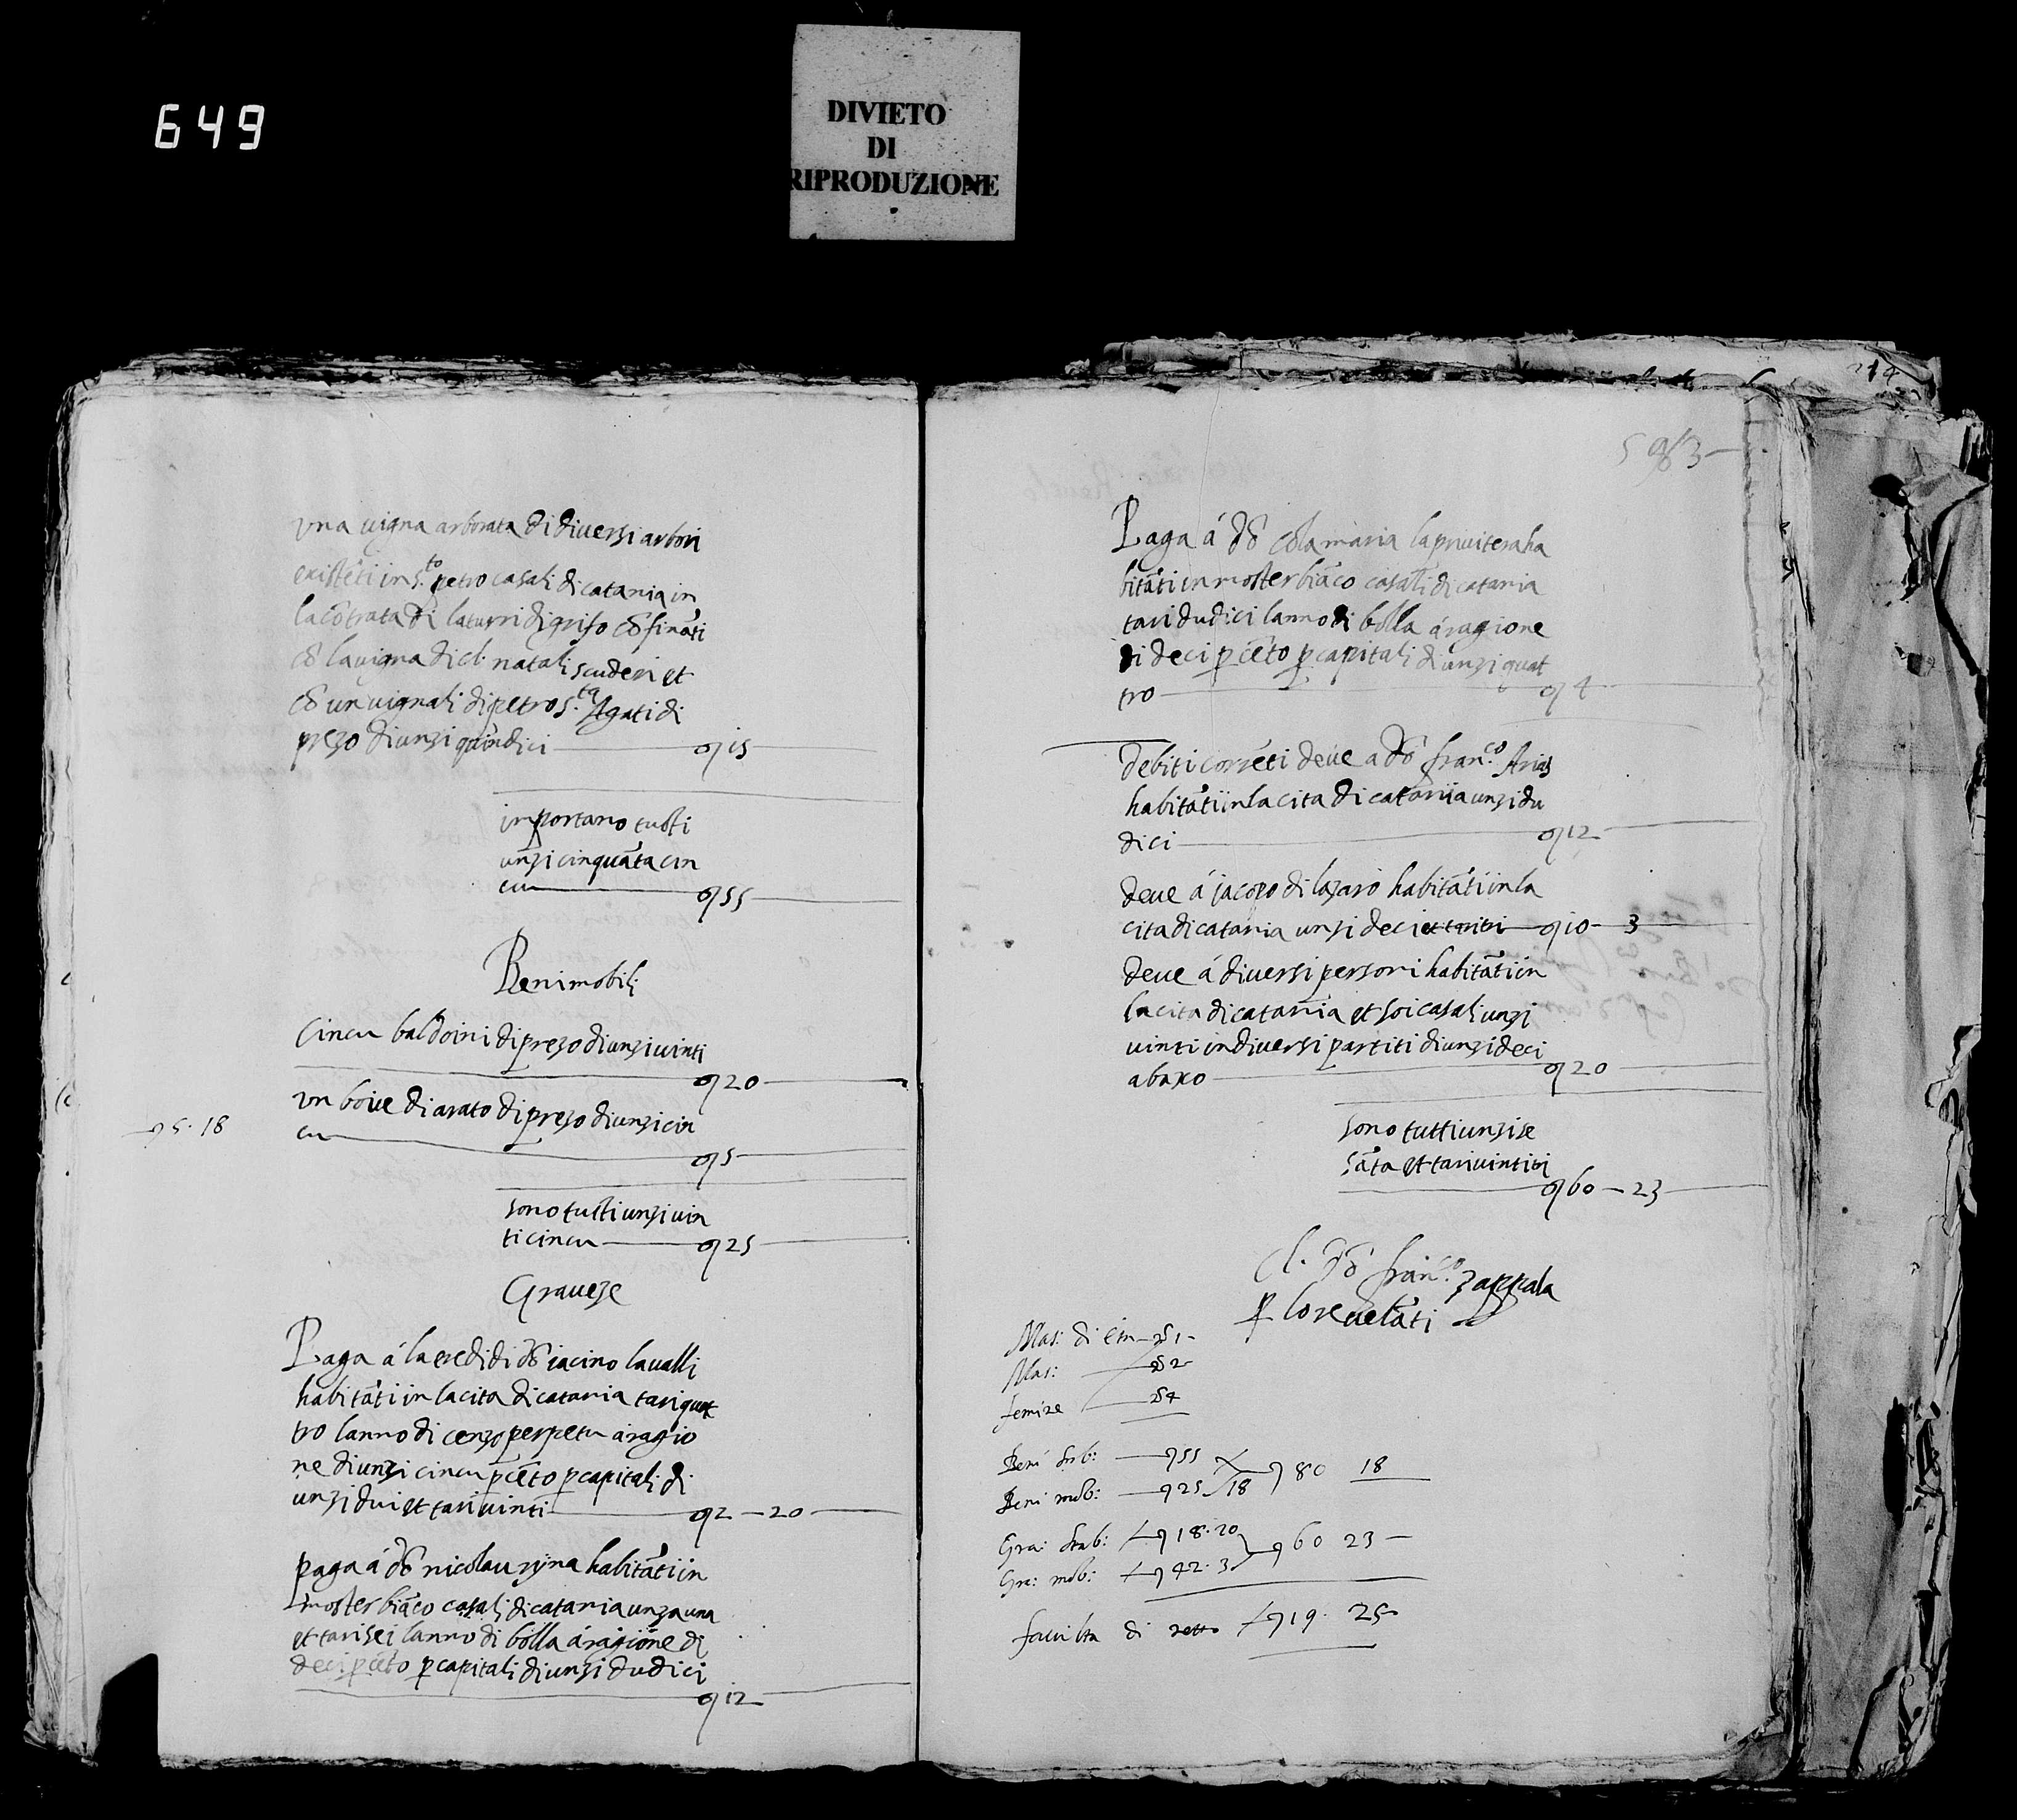 649
DIVIETO
DI
RIPRODUZIONE
una vigna arborata di diversi arbori
existēti in s.to petro casali di catania in
la cōtrata di la turri di grifo cōfināti
cō la vigna di cl. natali scuderi et
cō un vignali di petro s.ta Agati di
prezo di unzi quindici 15
importano tutti
unzi cinquāta cin
cu 55
Beni mobili
Cincu baldoini di prezo di unzi vinti
20
un boive di arato di prezo di unzi cin
cu
5
5.18
sono tutti unzi vin
ti cincu 25
Graveze
Paga á la eredi di dō iacino la valli
habitāti in la cita di catania tari quat
tro lanno di cenzo perpetu a ragio
ne di unzi cincu p cēto p capitali di
unzi dui et tari vinti 2 - 20
paga á dō nicolau habitāti in
mosterbiāco casali di catania unza una
et tari sei lanno di bolla á ragione di
deci p cēto p capitali di unzi dudici
12
214
Paga á dō cola maria la pruitera ha
bitāti in mosterbiāco casali di catania
tari dudici lanno di bolla á ragione
di deci p cēto p capitali di unzi quat
tro 4
debiti corrēti deve a dō fran.co Arias
habitāti in la cita di catania unzi du
dici 12
deve á jacopo di lazaro habitāti in la
cita di catania unzi deci et tari tri 10 - 3
deve á diversi personi habitāti in
la cita di catania et soi casali unzi
vinti in diversi partiti di unzi deci
abaxo 20
sono tutti unzi se
sāta et tari vintitri
60 - 23
Cl. dō fran.co zappala
p lo revelāti
Mas: di etn 1
Mas: 2
femine 4
Beni stab: 55
80 18
Beni mob: 25 18
Gra: stab: 18.20
60 23
Gra: mob: 42.3
faculta di netto 19. 25